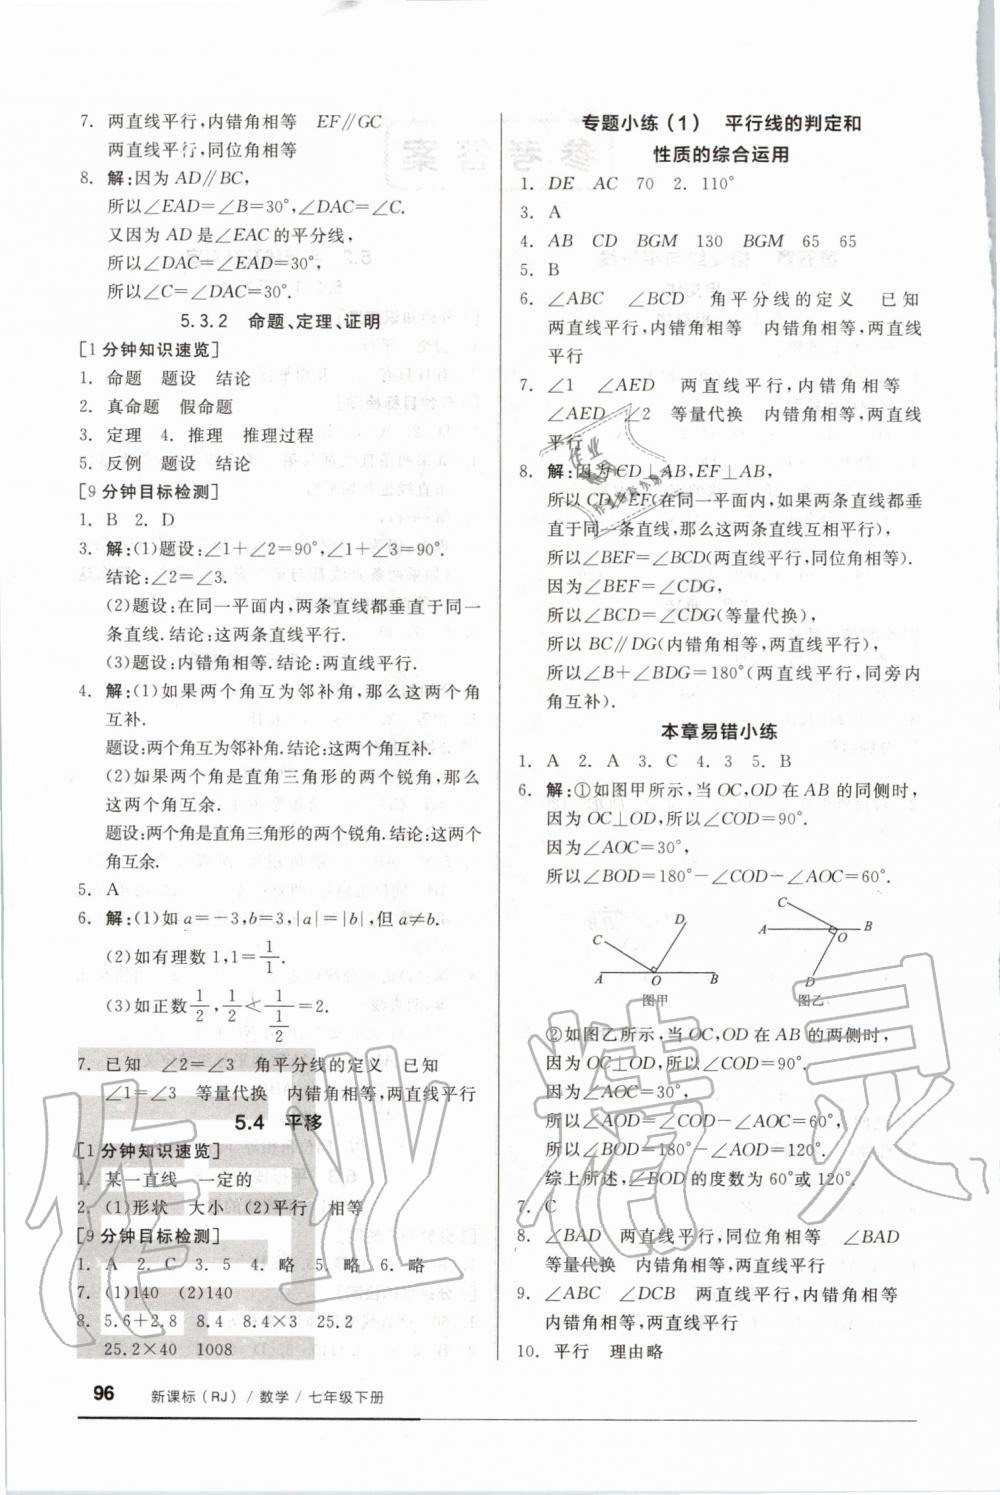 7. 两直线平行,内错角相等　EF∥GC
两直线平行,同位角相等
8. 解:因为AD∥BC,
所以∠EAD=∠B=30°,∠DAC=∠C.
又因为AD是∠EAC的平分线,
所以∠DAC=∠EAD=30°,
所以∠C=∠DAC=30°.
5.3.2　命题、定理、证明
[1分钟知识速览]
1. 命题　题设　结论
2. 真命题　假命题
3. 定理　4. 推理　推理过程
5. 反例　题设　结论
[9分钟目标检测]
1. B　2. D
3. 解:(1)题设:∠1+∠2=90°,∠1+∠3=90°.
结论:∠2=∠3.
(2)题设:在同一平面内,两条直线都垂直于同一
条直线.结论:这两条直线平行.
(3)题设:内错角相等.结论:两直线平行.
4. 解:(1)如果两个角互为邻补角,那么这两个角
互补.
题设:两个角互为邻补角.结论:这两个角互补.
(2)如果两个角是直角三角形的两个锐角,那么
这两个角互余.
题设:两个角是直角三角形的两个锐角.结论:这两个
角互余.
5. A
6. 解:(1)如a=-3,b=3,|a|=|b|,但a≠b.
(2)如有理数1,1=1/1.
(3)如正数1/2,1/2<1/(1/2)=2.
7. 已知　∠2=∠3　角平分线的定义　已知
∠1=∠3　等量代换　内错角相等,两直线平行
5.4　平移
[1分钟知识速览]
1. 某一直线　一定的
2. (1)形状　大小　(2)平行　相等
[9分钟目标检测]
1. A　2. C　3. 5　4. 略　5. 略　6. 略
7. (1)140　(2)140
8. 5.6+2.8　8.4　8.4×3　25.2
25.2×40　1008
96　新课标(RJ)/数学/七年级下册
专题小练(1)　平行线的判定和
性质的综合运用
1. DE　AC　70　2. 110°
3. A
4. AB　CD　BGM　130　BGM　65　65
5. B
6. ∠ABC　∠BCD　角平分线的定义　已知
两直线平行,内错角相等　内错角相等,两直线
平行
7. ∠1　∠AED　两直线平行,内错角相等
∠AED　∠2　等量代换　内错角相等,两直线
平行
8. 解:因为CD⊥AB,EF⊥AB,
所以CD∥EF(在同一平面内,如果两条直线都垂
直于同一条直线,那么这两条直线互相平行),
所以∠BEF=∠BCD(两直线平行,同位角相等).
因为∠BEF=∠CDG,
所以∠BCD=∠CDG(等量代换),
所以BC∥DG(内错角相等,两直线平行),
所以∠B+∠BDG=180°(两直线平行,同旁内
角互补).
本章易错小练
1. A　2. A　3. C　4. 3　5. B
6. 解:①如图甲所示,当OC,OD在AB的同侧时,
因为OC⊥OD,所以∠COD=90°.
因为∠AOC=30°,
所以∠BOD=180°-∠COD-∠AOC=60°.
C　D　A　O　B　图甲
C　A　O　B　D　图乙
②如图乙所示,当OC,OD在AB的两侧时,
因为OC⊥OD,所以∠COD=90°.
因为∠AOC=30°,
所以∠AOD=∠COD-∠AOC=60°,
所以∠BOD=180°-∠AOD=120°.
综上所述,∠BOD的度数为60°或120°.
7. C
8. ∠BAD　两直线平行,同位角相等　∠BAD
等量代换　内错角相等,两直线平行
9. ∠ABC　∠DCB　两直线平行,内错角相等
内错角相等,两直线平行
10. 平行　理由略
作业精灵